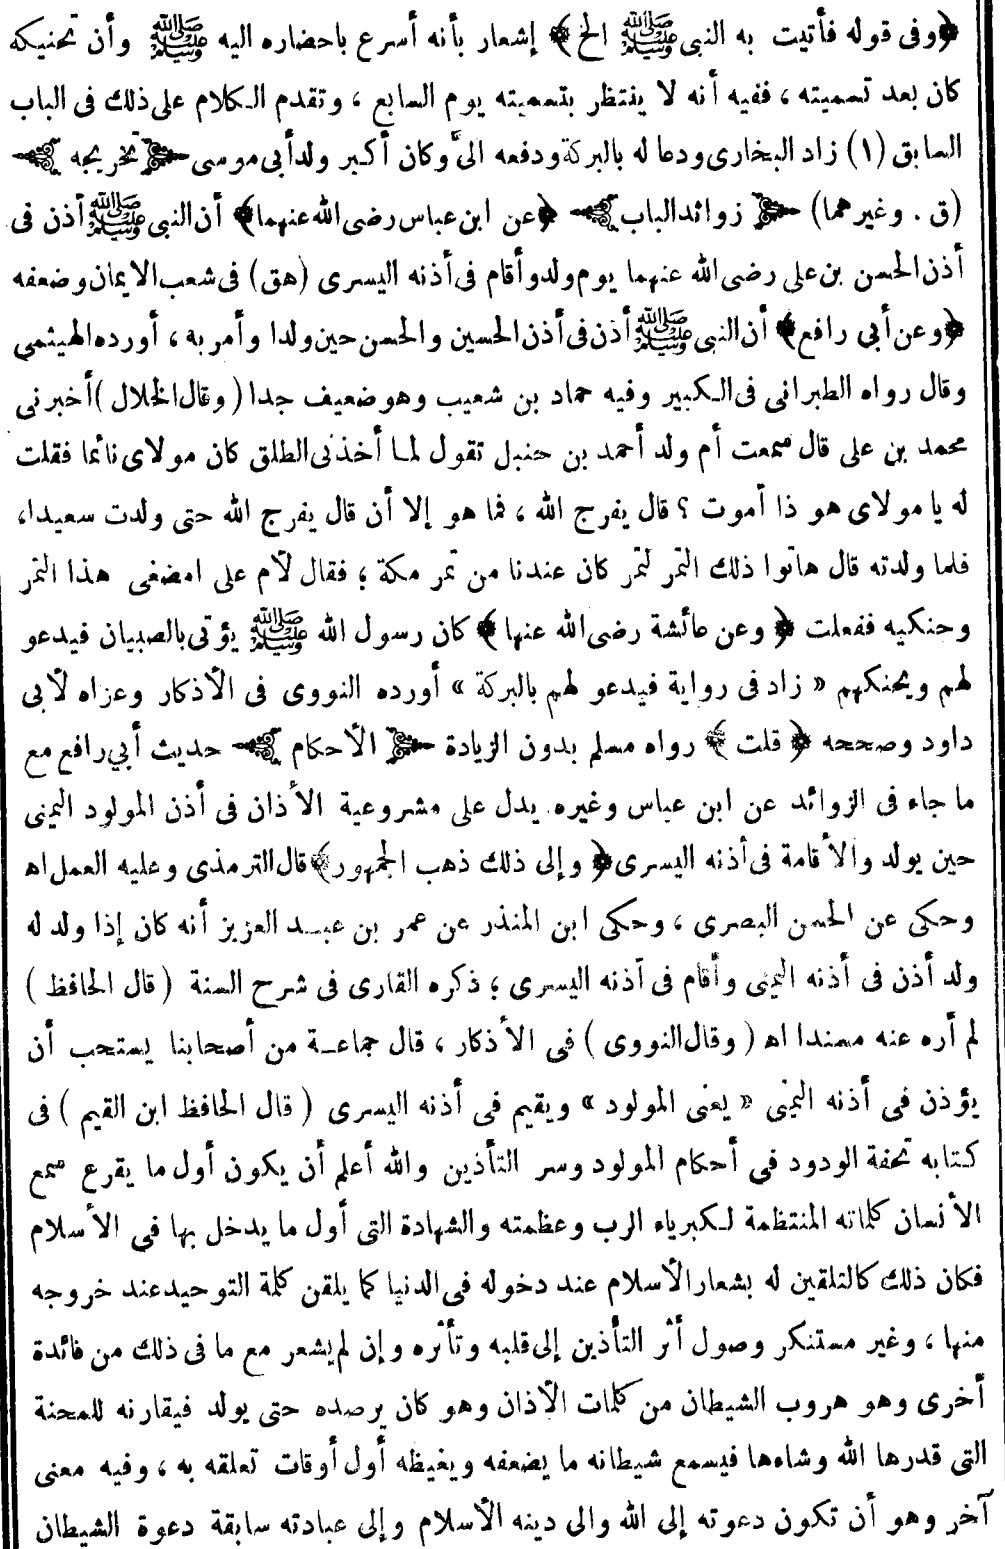 ﴿وفى قوله فأتيت به النبى ﷺ الخ﴾ إشعار بأنه أسرع باحضاره اليه ﷺ وأن تحنيكه
كان بعد تسميته ، ففيه أنه لا ينتظر بتسميته يوم السابع ، وتقدم الكلام على ذلك فى الباب
السابق (١) زاد البخارى ودعا له بالبركة ودفعه الىَّ وكان أكبر ولد أبى موسى ﴿تخريجه﴾
(ق . وغيرهما) ﴿زوائد الباب﴾ ﴿عن ابن عباس رضى الله عنهما﴾ أن النبى ﷺ أذن فى
أذن الحسن بن على رضى الله عنهما يوم ولد وأقام فى أذنه اليسرى (هق) فى شعب الايمان وضعفه
﴿وعن أبي رافع﴾ أن النبى ﷺ أذن فى أذن الحسين والحسن حين ولدا وأمر به ، أورده الهيثمى
وقال رواه الطبرانى فى الكبير وفيه حماد بن شعيب وهو ضعيف جدا (وقال الخلال) أخبرنى
محمد بن على قال سمعت أم ولد أحمد بن حنبل تقول لما أخذنى الطلق كان مولاى نائما فقلت
له يا مولاى هو ذا أموت ؟ قال يفرج الله ، فما هو إلا أن قال يفرج الله حتى ولدت سعيدا،
فلما ولدته قال هاتوا ذلك التمر لتمر كان عندنا من تمر مكة ؛ فقال لأم على امضغى هذا التمر
وحنكيه ففعلت ﴿وعن عائشة رضى الله عنها﴾ كان رسول الله ﷺ يؤتى بالصبيان فيدعو
لهم ويحنكهم « زاد فى رواية فيدعو لهم بالبركة » أورده النووى فى الأذكار وعزاه لأبى
داود وصححه ﴿قلت﴾ رواه مسلم بدون الزيادة ﴿الأحكام﴾ حديث أبي رافع مع
ما جاء فى الزوائد عن ابن عباس وغيره يدل على مشروعية الأذان فى أذن المولود اليمنى
حين يولد والأقامة فى أذنه اليسرى ﴿وإلى ذلك ذهب الجمهور﴾ قال الترمذى وعليه العمل اه
وحكى عن الحسن البصرى ، وحكى ابن المنذر عن عمر بن عبد العزيز أنه كان إذا ولد له
ولد أذن فى أذنه اليمنى وأقام فى أذنه اليسرى ؛ ذكره القارى فى شرح السنة (قال الحافظ)
لم أره عنه مسندا اه (وقال النووى) فى الأذكار ، قال جماعة من أصحابنا يستحب أن
يؤذن فى أذنه اليمنى « يعنى المولود » ويقيم فى أذنه اليسرى (قال الحافظ ابن القيم) فى
كتابه تحفة الودود فى أحكام المولود وسر التأذين والله أعلم أن يكون أول ما يقرع سمع
الأنسان كلماته المنتظمة لكبرياء الرب وعظمته والشهادة التى أول ما يدخل بها فى الأسلام
فكان ذلك كالتلقين له بشعار الأسلام عند دخوله فى الدنيا كما يلقن كلمة التوحيد عند خروجه
منها ، وغير مستنكر وصول أثر التأذين إلى قلبه وتأثره وإن لم يشعر مع ما فى ذلك من فائدة
أخرى وهو هروب الشيطان من كلمات الأذان وهو كان يرصده حتى يولد فيقارنه للمحنة
التى قدرها الله وشاءها فيسمع شيطانه ما يضعفه ويغيظه أول أوقات تعلقه به ، وفيه معنى
آخر وهو أن تكون دعوته إلى الله والى دينه الأسلام وإلى عبادته سابقة دعوة الشيطان